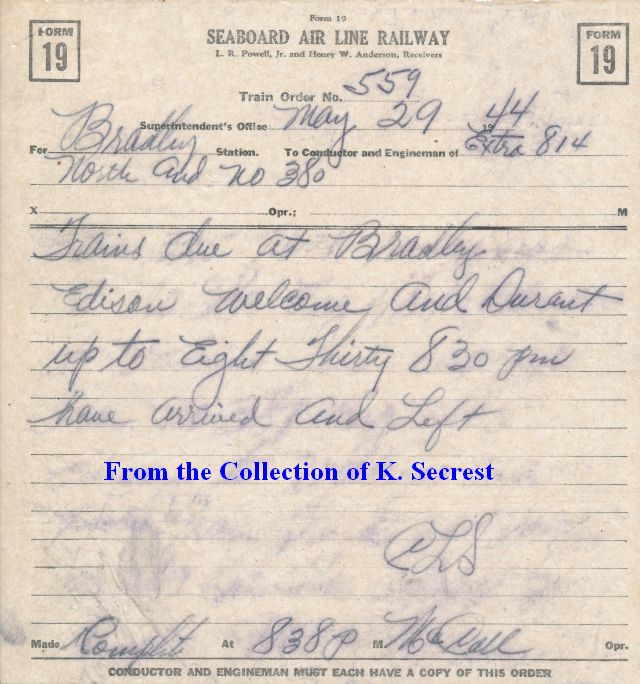 Form 19
FORM 19
SEABOARD AIR LINE RAILWAY
FORM 19
L. R. Powell, Jr. and Henry W. Anderson, Receivers
Train Order No. 559
Superintendent's Office May 29 1944
For Bradley Station. To Conductor and Engineman of Extra 814
North and No 380
X Opr.; M
Trains due at Bradley
Edison Welcome and Durant
up to Eight Thirty 830 pm
have arrived and Left
From the Collection of K. Secrest
CLS
Made Complete At 838 P M. McCall Opr.
CONDUCTOR AND ENGINEMAN MUST EACH HAVE A COPY OF THIS ORDER